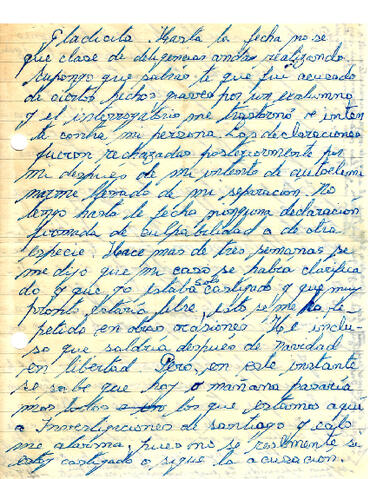 Gladicita. Hasta la fecha no se
que clase de diligencias andas realizando
supongo que sabrás tu que fui acusado
de ciertos hechos graves por un exalumno
y el interrogatorio me trastornó e inten
té contra mi persona. Las declaraciones
fueron rechazadas posteriormente por
mi despues de mi intento de autoelimi
narme llevado de mi separacion. No
tengo hasta la fecha ninguna declaración
firmada de culpabilidad o de otra
especie. Hace mas de tres semanas se
me dijo que mi caso se habia clarifica
do y que yo estaba solo castigado y que muy
pronto estaria libre, esto se me ha re-
petido en otras ocasiones. H e inclu-
so que saldria despues de navidad
en libertad. Pero, en este instante
se sabe que hoy o mañana pasaria
mos todos los que estamos aqui
a Investigaciones de santiago y esto
me alarma, pues no se realmente si
estoy castigado o sigue la acusacion.